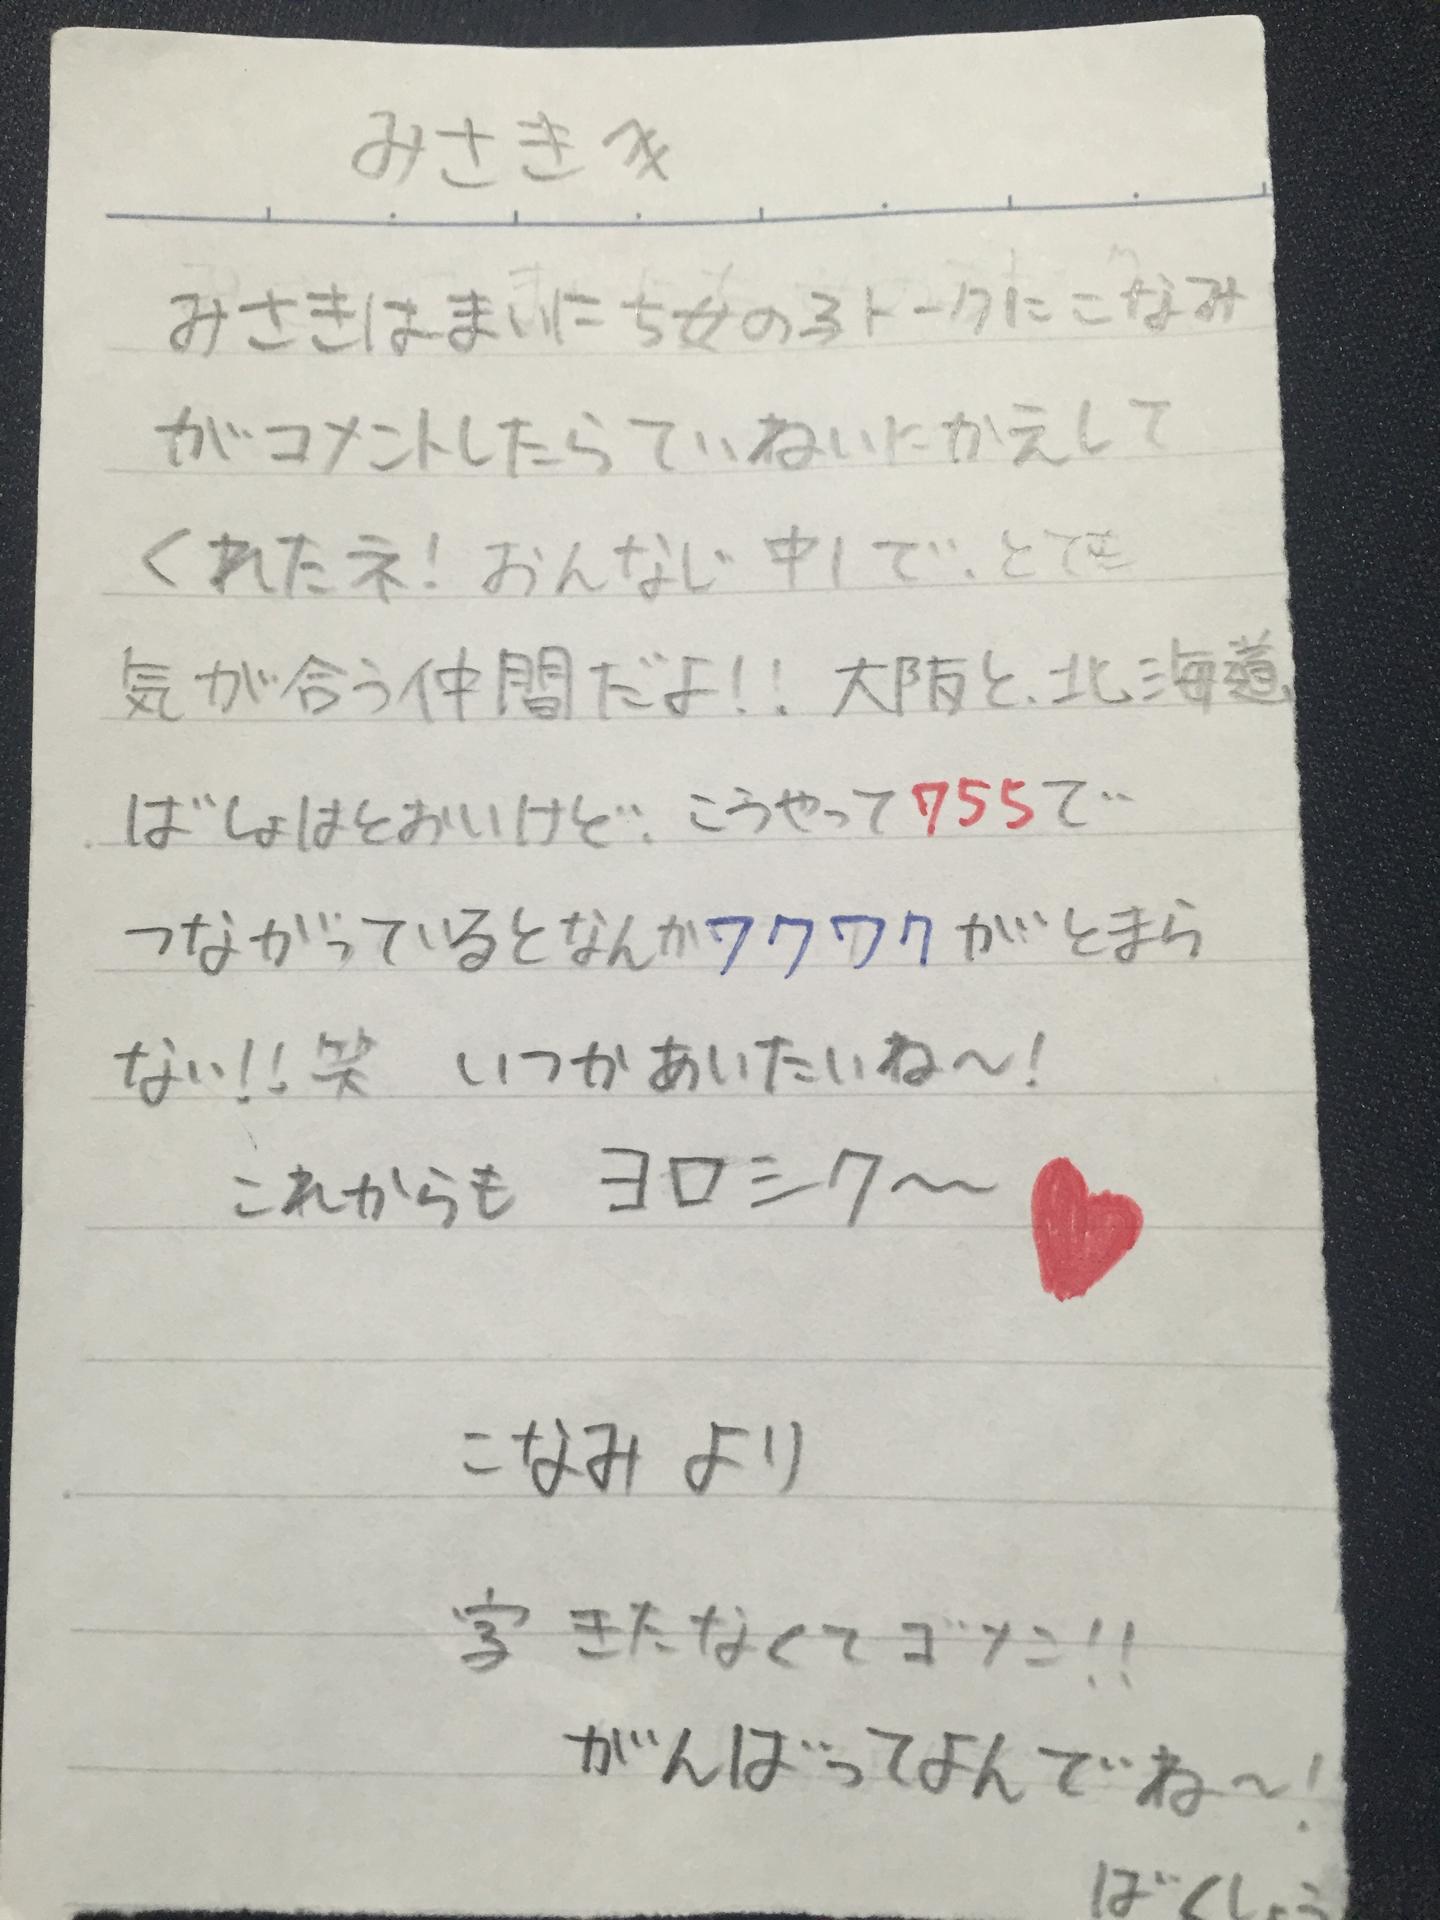 みさきへ
みさきはまいにち女の子トークにこなみ
がコメントしたらていねいにかえして
くれたネ！おんなじ中1で、とても
気が合う仲間だよ!! 大阪と、北海道
ばしょはとおいけど、こうやって755で
つながっているとなんかワクワクがとまら
ない!!笑 いつかあいたいね〜!
これからも ヨロシク〜
こなみ より
字 きたなくてゴメン!!
がんばってよんでね〜!
ばくしょう